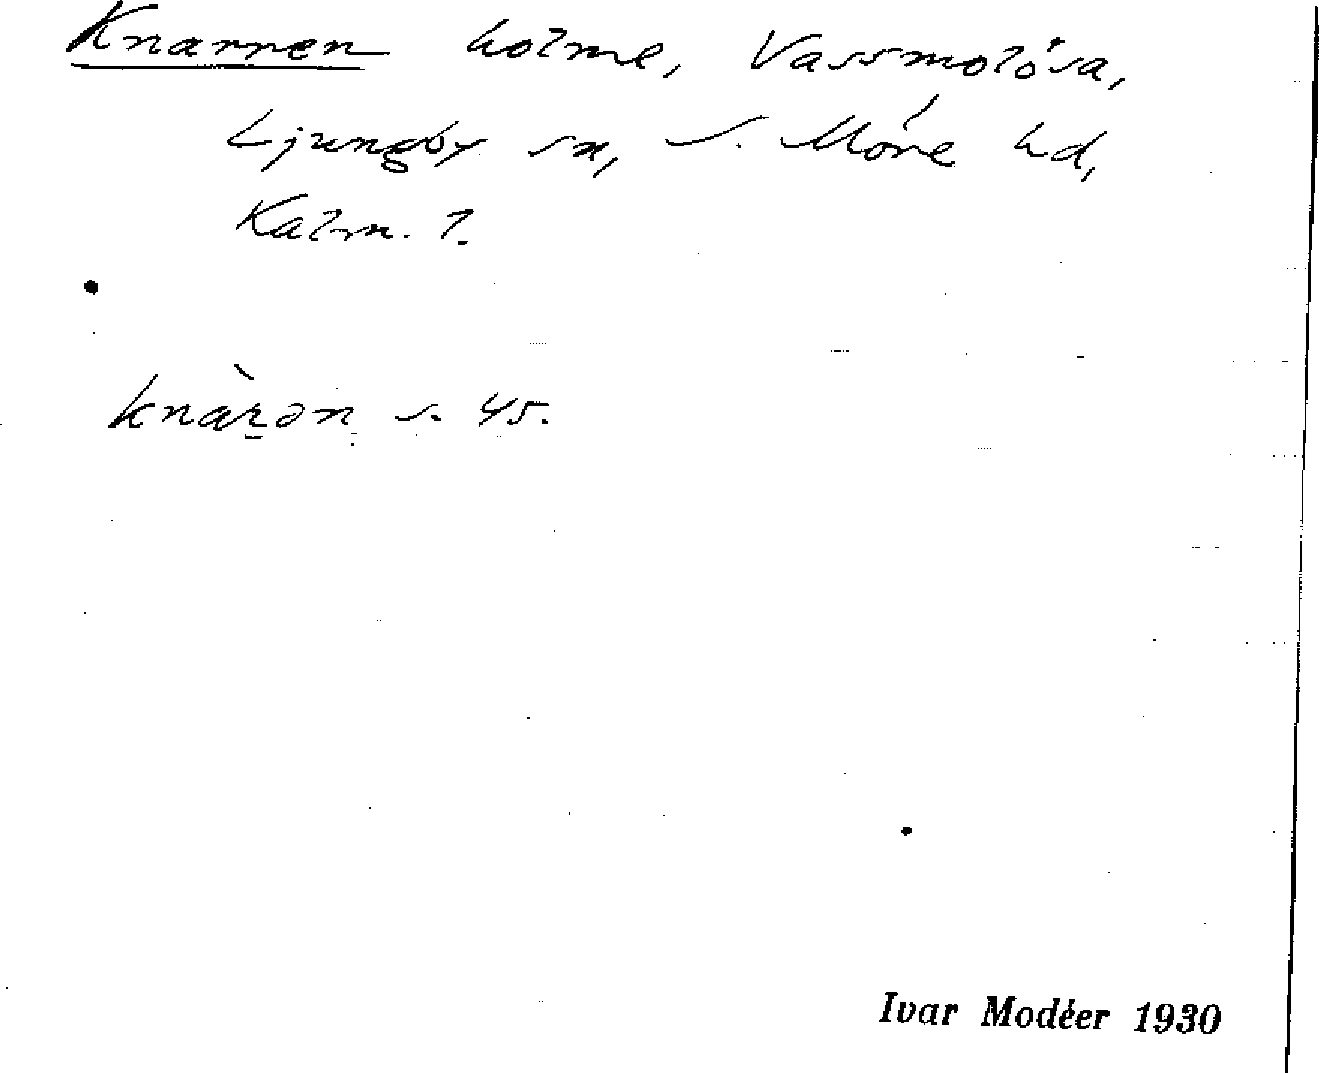 Knarren holme, Vassmolösa,
Ljungby sn, S. Möre hd,
Kalm. l.
knàrən s. 45.
Ivar Modéer 1930